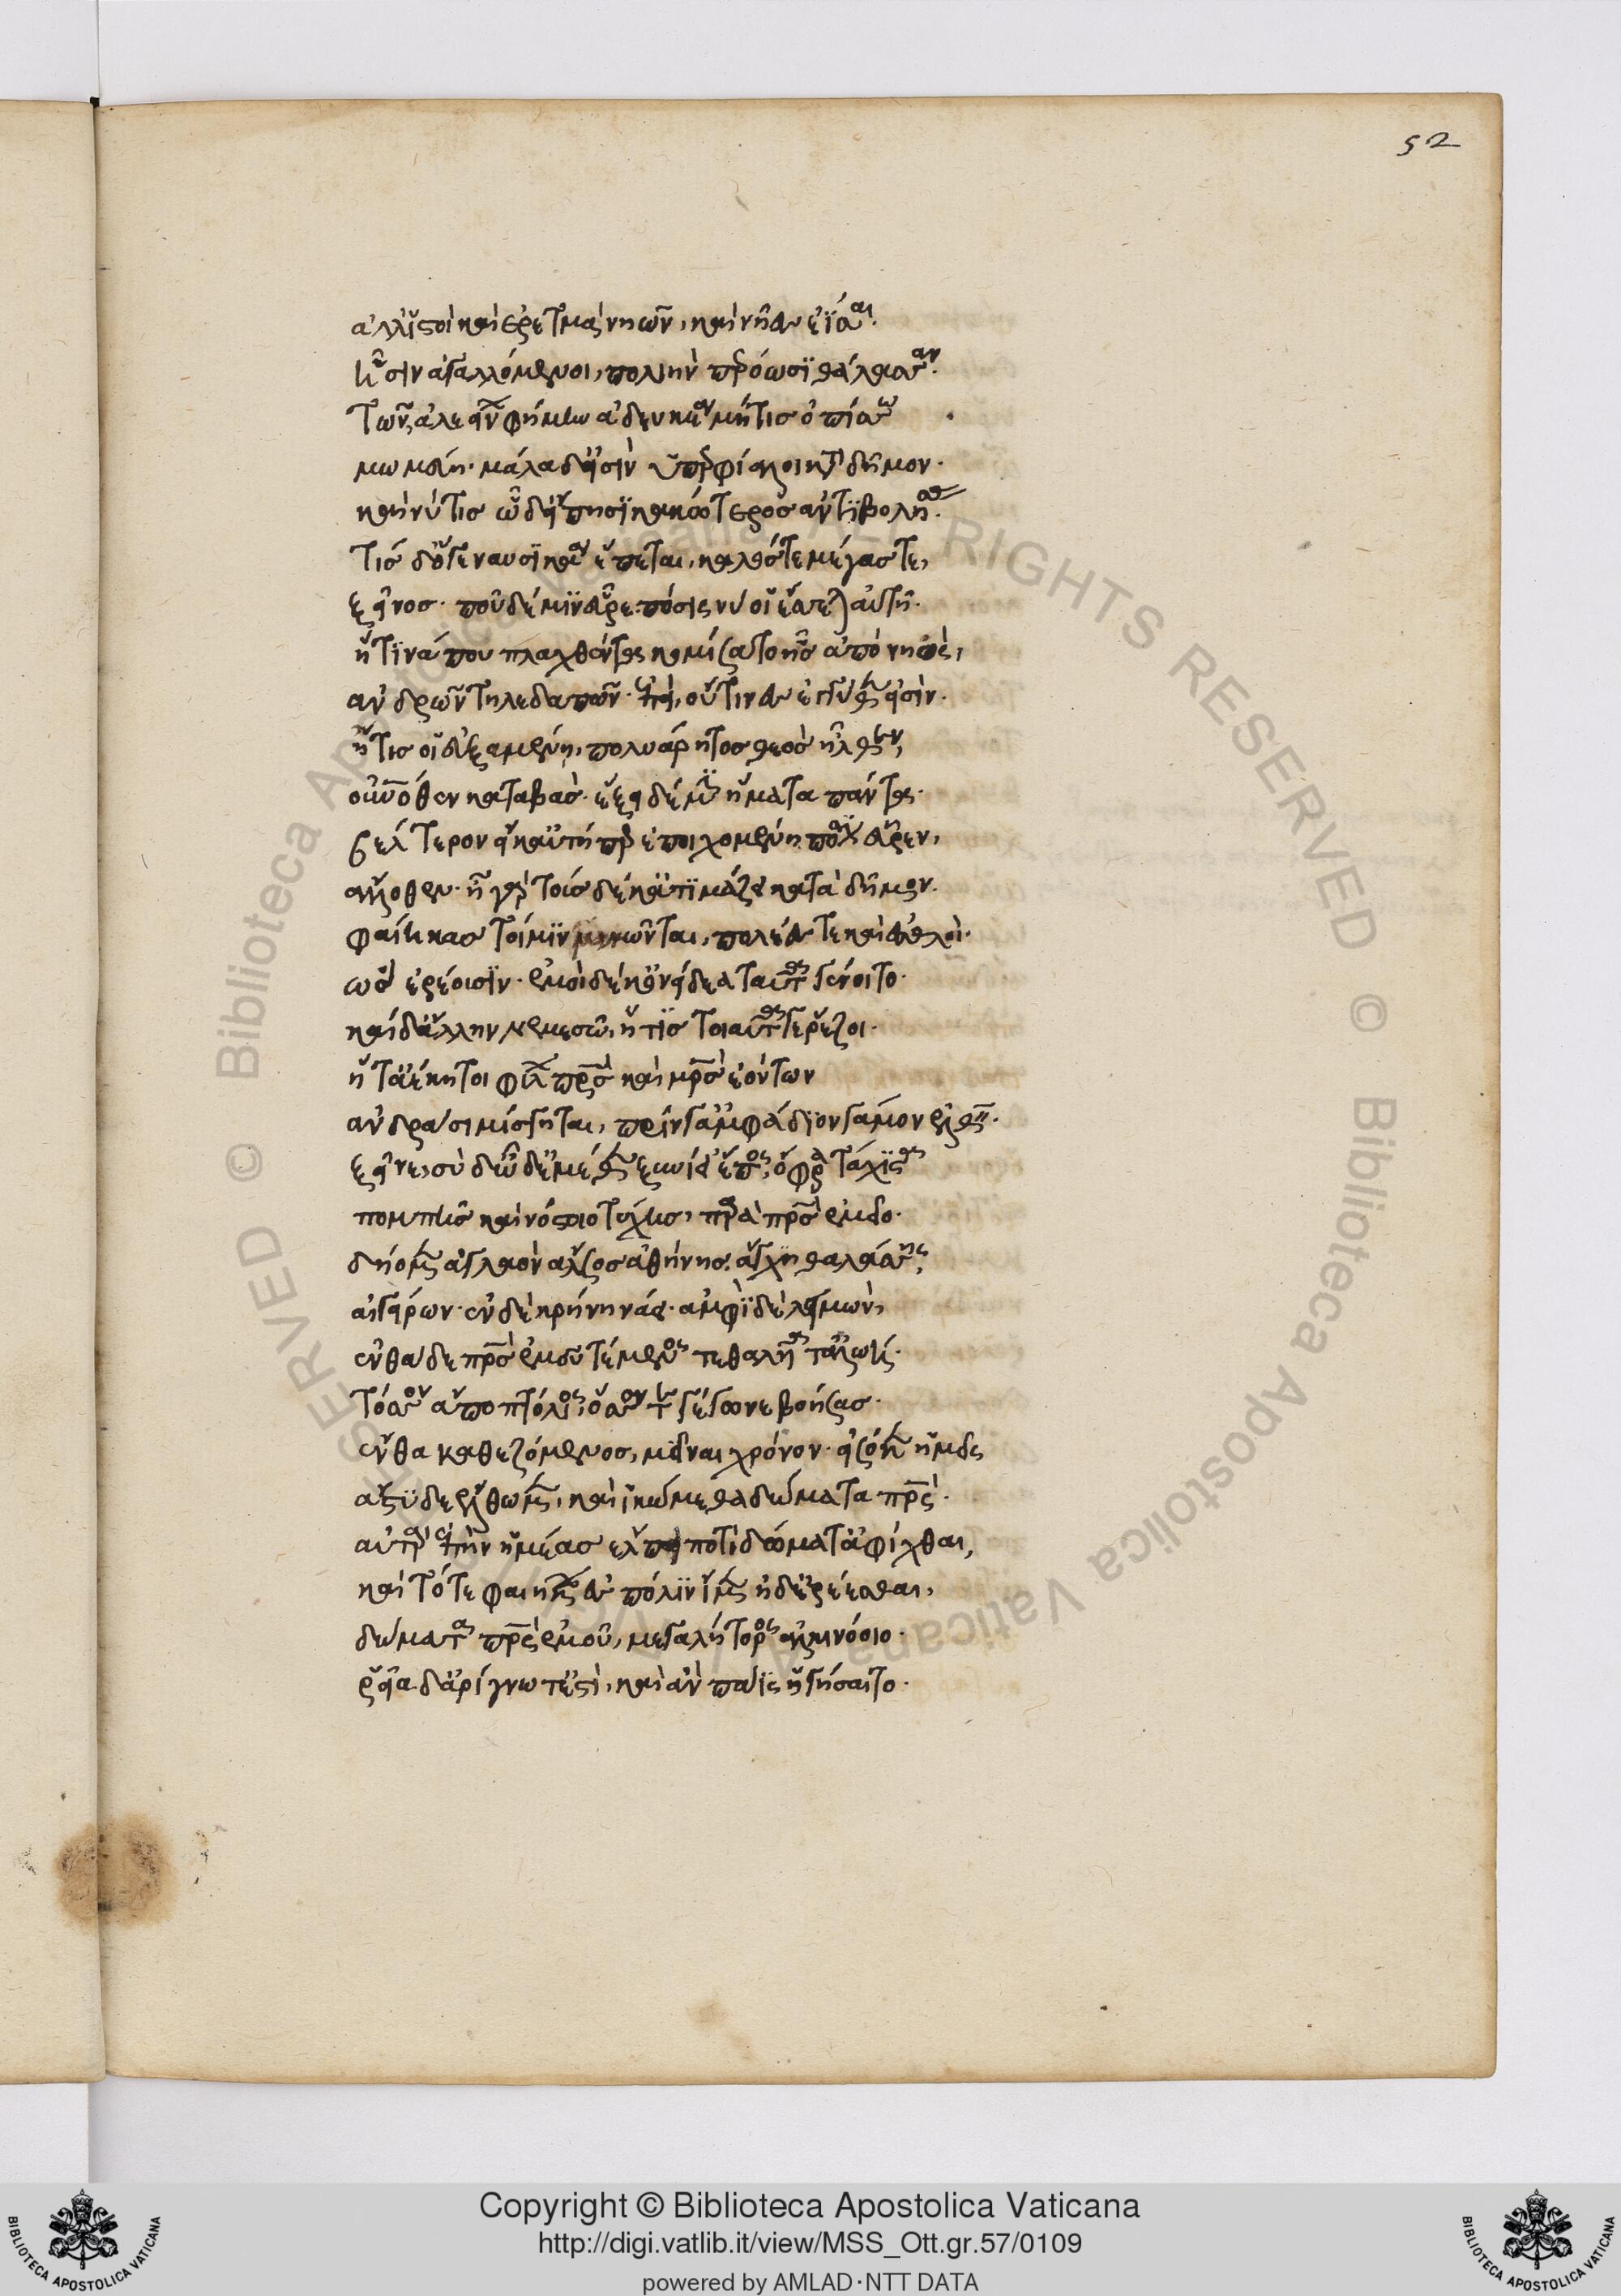 ἀλλ' ἱστοὶ καὶ ἐρετμὰ νηῶν, καὶ νῆες ἐῖσαι.
ᾗσιν ἀγαλλόμενοι, πολιὴν περόωσι θάλασσαν.
τῶν ἀλεείνω φῆμιν ἀδευκέα μήτις ὀπίσσω
μωμεύῃ. μάλα δ' εἰσὶν ὑπερφίαλοι κατὰ δῆμον.
καί νύ τις ὧδ' εἴπῃσι κακώτερος ἀντιβολήσας.
τίς δ' ὅδε ναυσικάᾳ ἕπεται, καλός τε μέγας τε,
ξεῖνος. ποῦ δέ μιν εὗρε. πόσις νύ οἱ ἔσσεται αὐτῇ.
ἤ τινά που πλαγχθέντα κομίσσατο ἧς ἀπὸ νηὸς,
ἀνδρῶν τηλεδαπῶν. ἐπεὶ, οὔτινες ἐγγύθεν εἰσίν.
ἤ τις οἱ εὐξαμένῃ, πολυάρητος θεὸς ἦλθεν,
οὐρανόθεν καταβάς. ἕξει δέ μιν ἤματα πάντα.
βέλτερον εἰ καὐτή περ ἐποιχομένη πόσιν εὗρεν,
ἄλλοθεν. ἦ γὰρ τούσδε κατιμάζει κατὰ δῆμον.
φαίηκας τοί μιν μνῶνται, πολέες τε καὶ ἐσθλοί.
ὣς ἐρέουσιν. ἐμοὶ δέ κ' ὀνείδεα ταῦτα γένοιτο.
καὶ δ' ἄλλῃ νεμεσῶ, ἥ τις τοιαῦτά γε ῥέζοι.
ἥ τ' ἀέκητι φίλων πατρὸς καὶ μητρὸς ἐόντων
ἀνδράσι μίσγηται, πρίν γ' ἀμφάδιον γάμον ἐλθεῖν.
ξεῖνε, σὺ δ' ὧδ' ἐμέθεν ξυνίει ἔπος, ὄφρα τάχιστα
πομπῆς καὶ νόστοιο τύχῃς, παρὰ πατρὸς ἐμοῖο.
δήομεν ἀγλαὸν ἄλσος ἀθήνης. ἄγχι κελεύθου,
αἰγείρων. ἐν δὲ κρήνη νάει. ἀμφὶ δὲ λειμὼν,
ἔνθα δὲ πατρὸς ἐμοῦ τέμενος τεθαλυῖά τ' ἀλωή.
τόσσον ἀπὸ πτόλιος, ὅσσον τε γέγωνε βοήσας.
ἔνθα καθεζόμενος, μεῖναι χρόνον. εἰσόκεν ἡμεῖς
ἄστυδε ἔλθωμεν, καὶ ἱκώμεθα δώματα πατρός.
αὐτὰρ ἐπὴν ἡμέας ἔλπῃ ποτὶ δώματ' ἀφίχθαι,
καὶ τότε φαιήκων ἐς πόλιν ἴμεν ἠδ' ἐρέεσθαι,
δώματα πατρὸς ἐμοῦ, μεγαλήτορος ἀλκινόοιο.
ῥεῖα δ' ἀρίγνωτ' ἐστὶ, καὶ ἂν πάϊς ἡγήσαιτο.
52
Copyright © Biblioteca Apostolica Vaticana
http://digi.vatlib.it/view/MSS_Ott.gr.57/0109
powered by AMLAD·NTT DATA